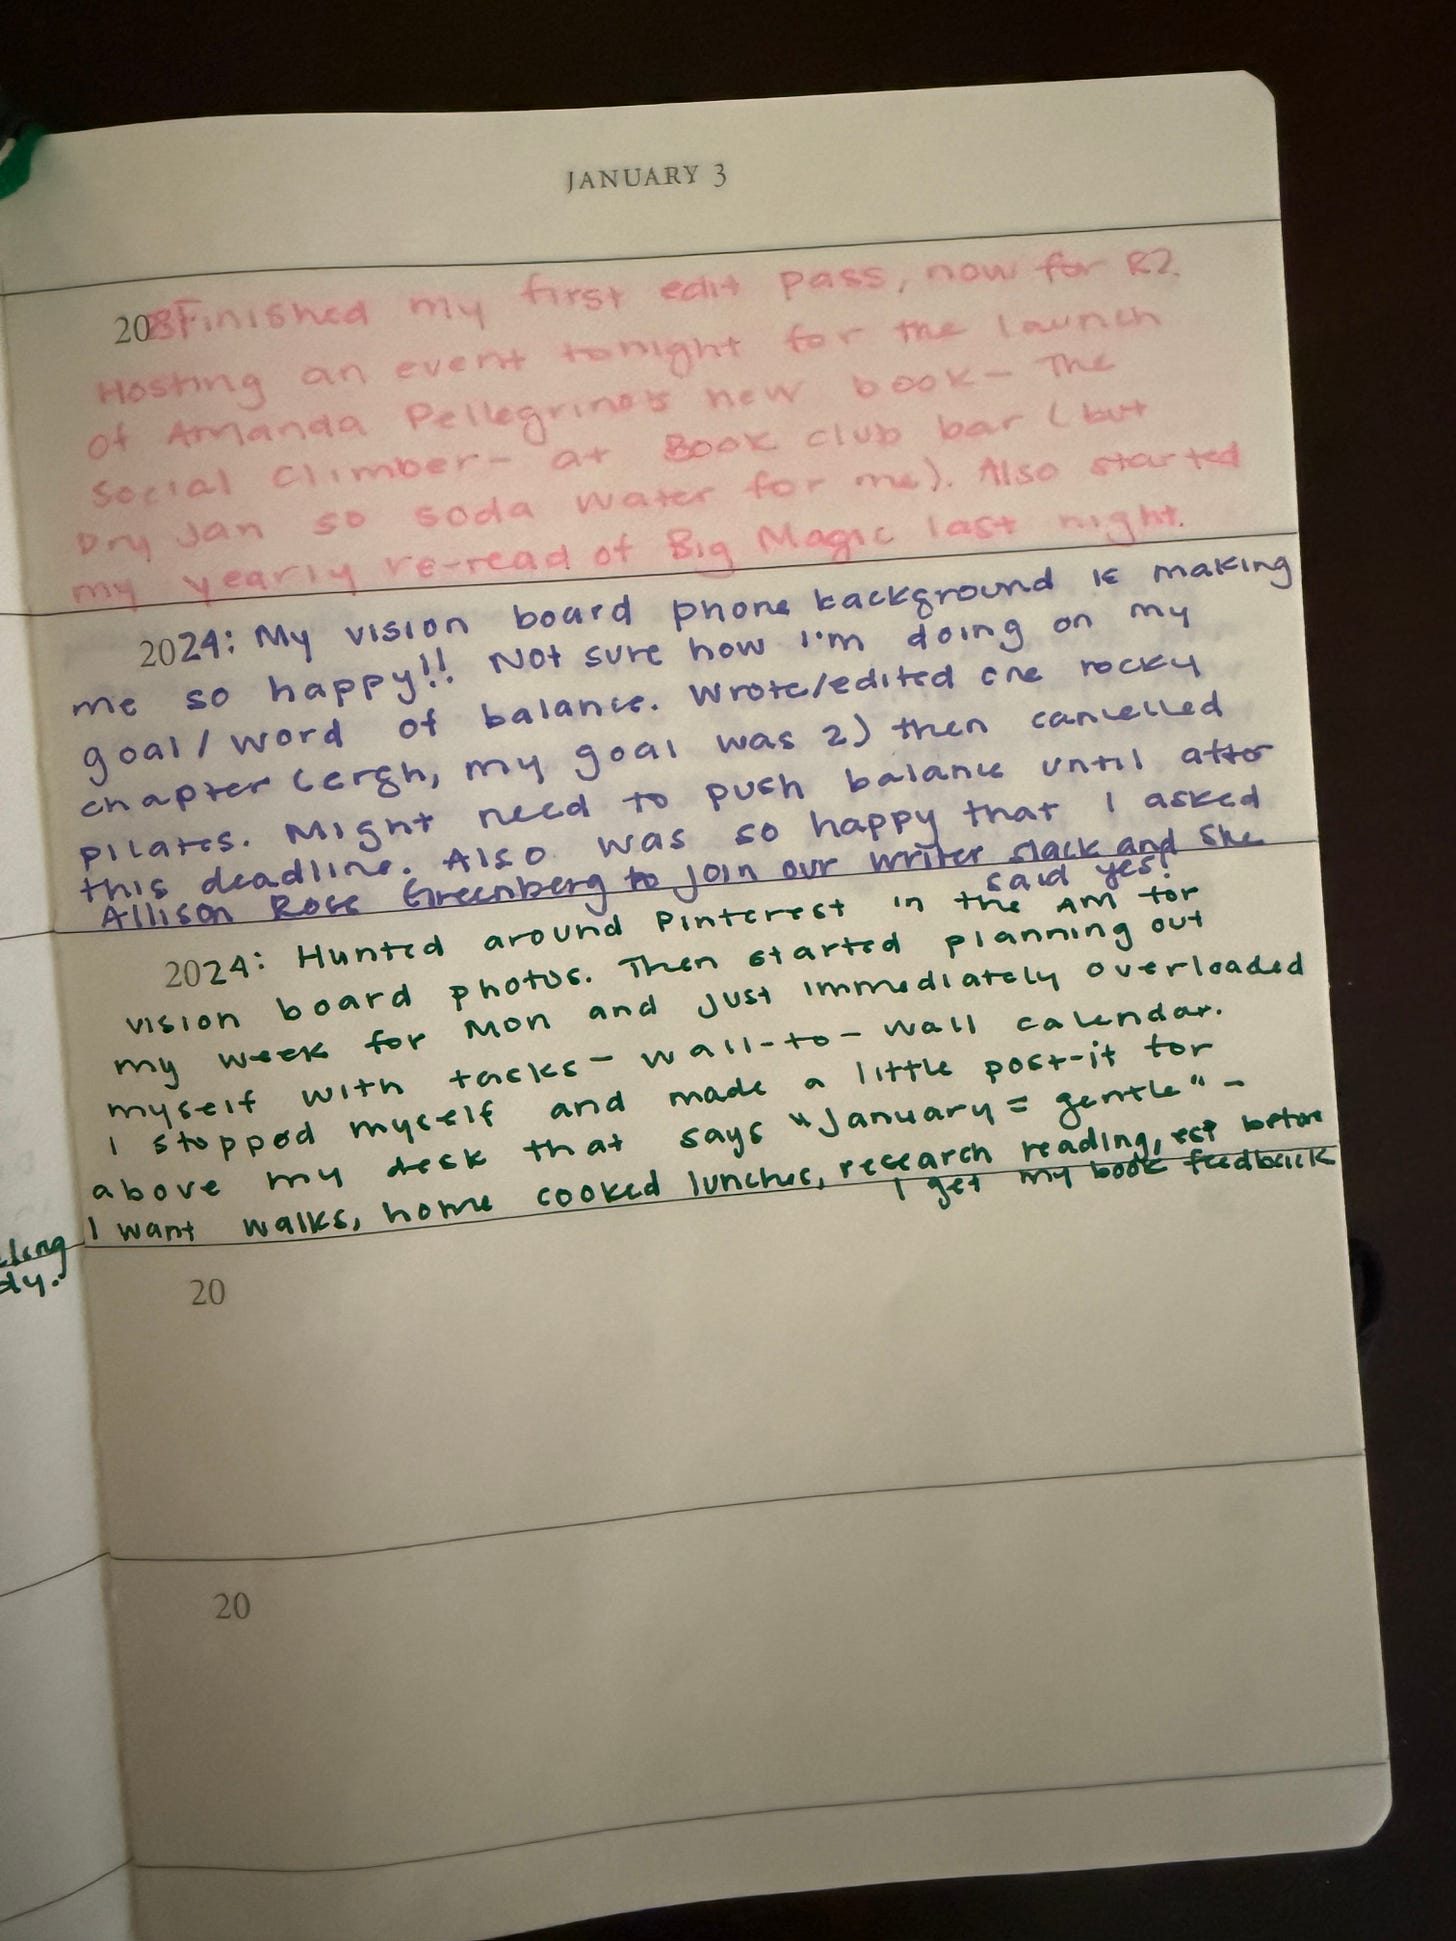 JANUARY 3
2023 Finished my first edit pass, now for R2.
Hosting an event tonight for the launch
of Amanda Pellegrino's new book - The
Social Climber - at Book club bar (but
Dry Jan so soda water for me). Also started
my yearly re-read of Big Magic last night.
2024: My vision board phone background is making
me so happy!! Not sure how I'm doing on my
goal/word of balance. Wrote/edited one rocky
chapter (ergh, my goal was 2) then cancelled
pilates. Might need to push balance until after
this deadline. Also was so happy that I asked
Allison Ross Greenberg to join our writer slack and she
said yes!
2024: Hunted around Pinterest in the AM for
vision board photos. Then started planning out
my week for Mon and just immediately overloaded
myself with tasks - wall-to-wall calendar.
I stopped myself and made a little post-it for
above my desk that says "January = gentle" -
I want walks, home cooked lunches, research reading, esp before
I get my book feedback
dy.
20
20